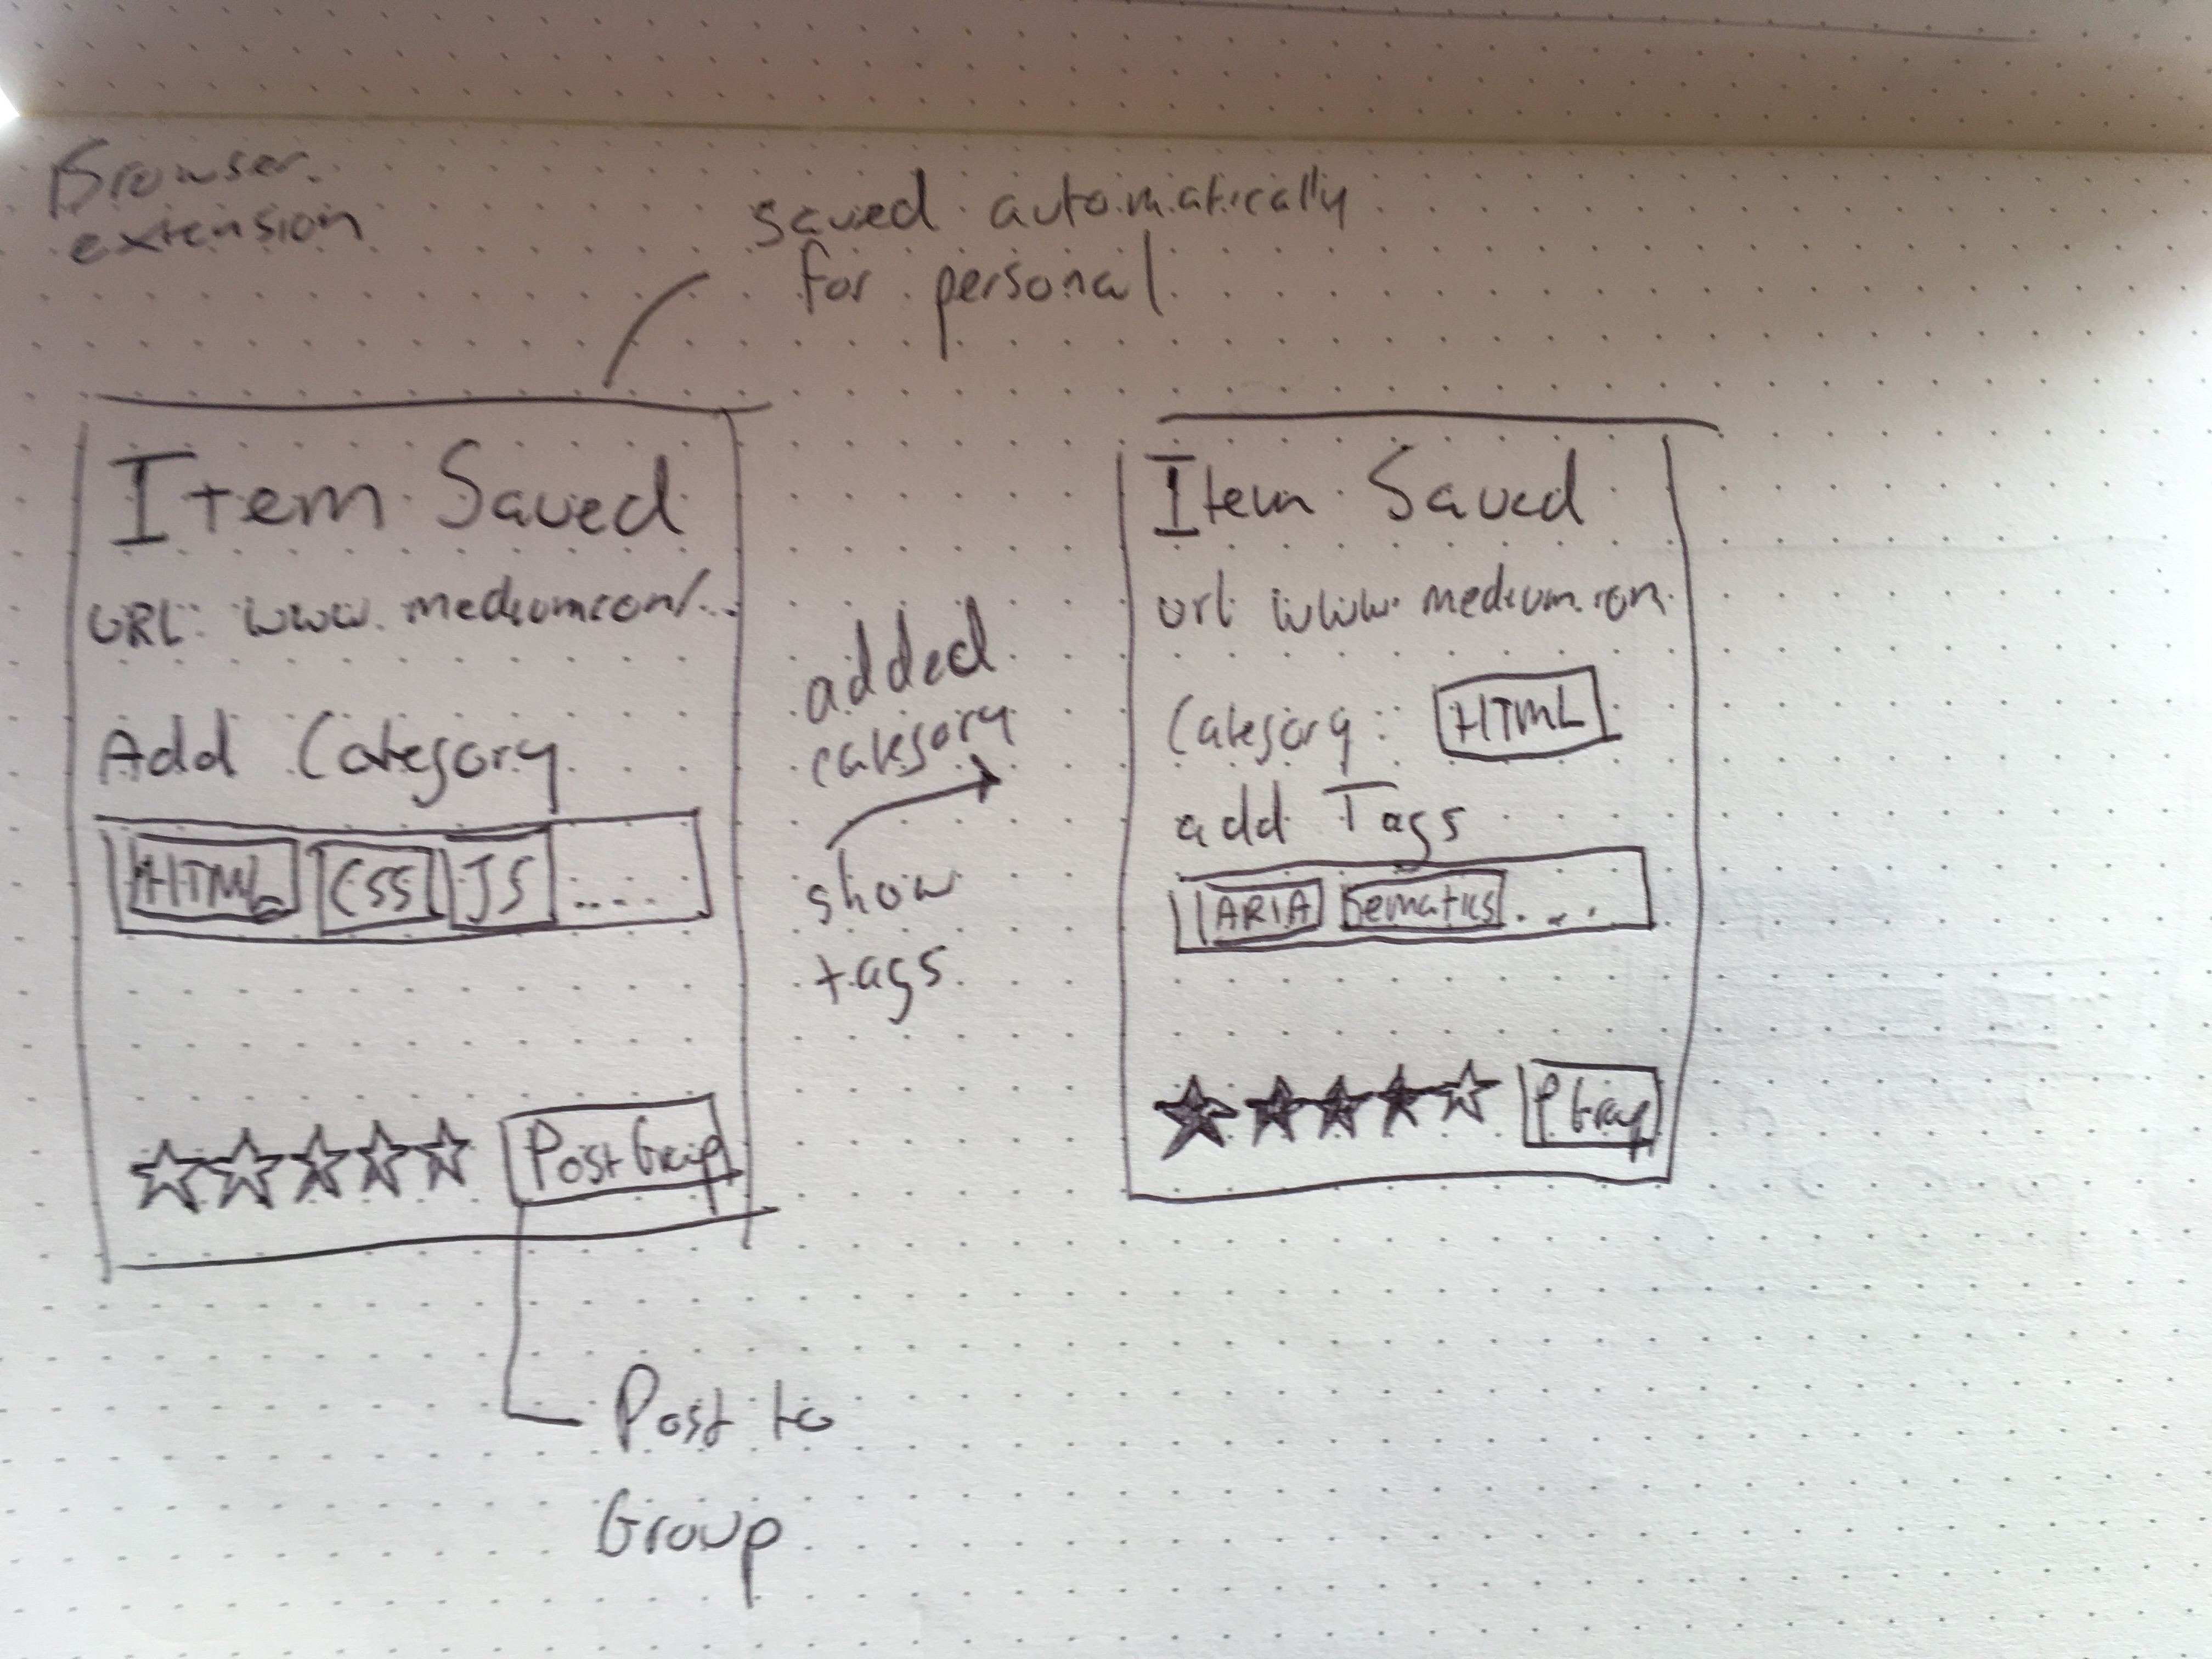 Browser
extension
saved automatically
for personal
Item Saved
URL: www.medium.com/...
Add Category
HTML CSS JS ....
Post Group
Post to
Group
added
category
show
tags
Item Saved
url www.medium.com
Category: HTML
add Tags
ARIA Sematics ...
P Group